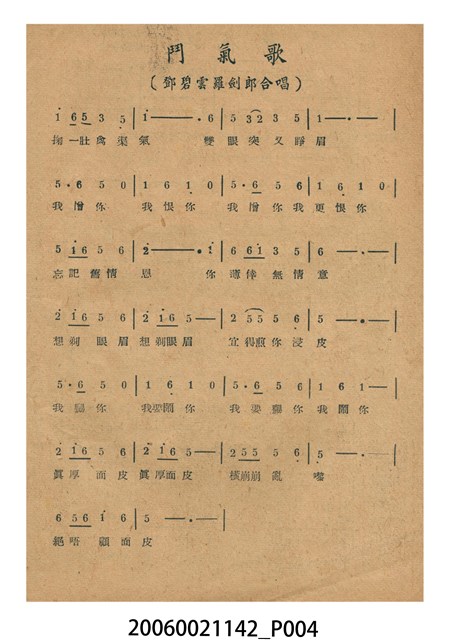 鬥氣歌
(鄧碧雲羅劍郎合唱)
1 65 3 5 | 1 — · 6 | 5 323 5 | 1 — · — |
一肚 氣 雙眼突又睜眉
5 · 6 5 0 | 1 6 1 0 | 5 · 6 5 6 | 1 6 1 0 |
我憎你 我恨你 我憎你我更恨你
5 16 5 6 | 2 — · 1 | 6 661 3 5 | 6 — · — |
忘記舊情 恩 你薄倖無情意
2 16 5 6 | 2 16 5 — | 2 55 5 6 | 5 — · — |
想剃眼眉想剃眼眉 宜得 你浸皮
5 · 6 5 0 | 1 6 1 0 | 5 · 6 5 6 | 1 6 1 — |
我 你 我要鬧你 我要 你我鬧你
2 16 5 6 | 2 16 5 — | 255 5 6 | 5 — · — |
眞厚面皮眞厚面皮 橫崩崩亂嚟
6 56 1 6 | 5 — · — |
絕唔顧面皮
20060021142_P004